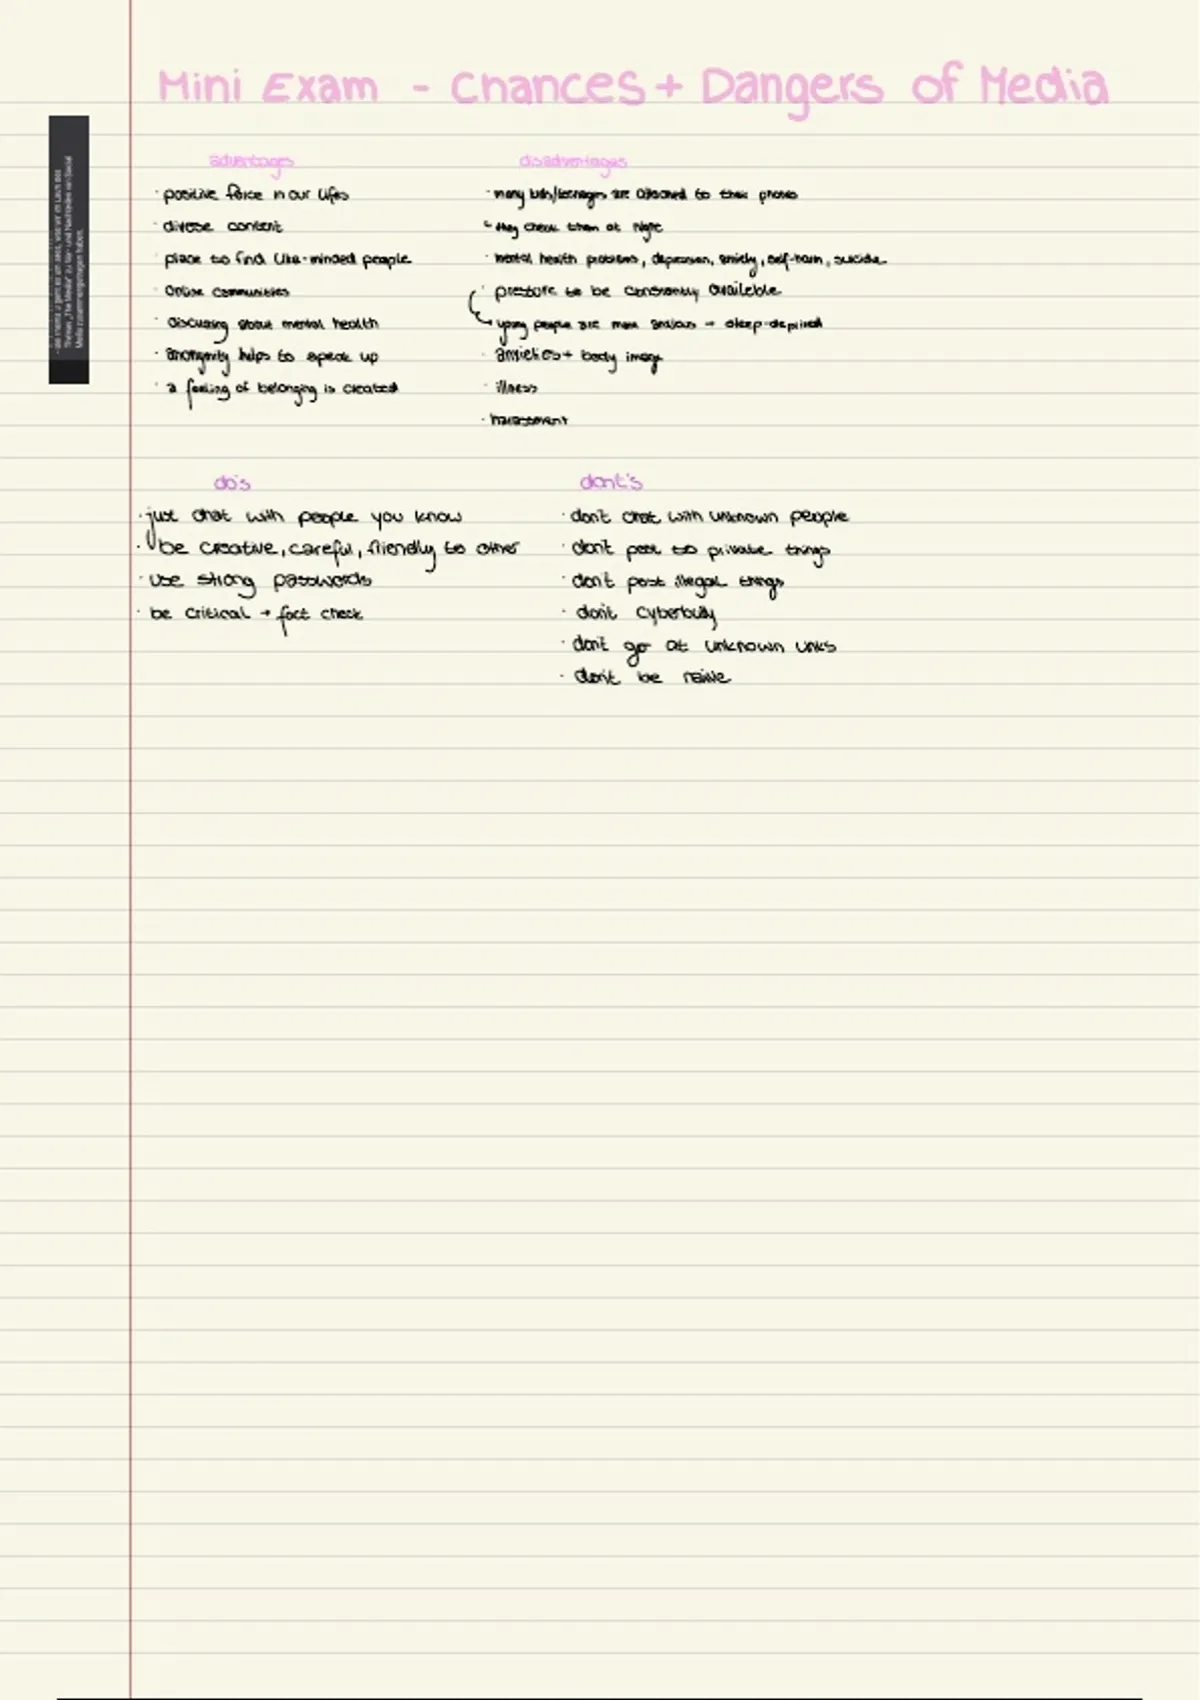 Mini Exam - Chances + Dangers of Media
advantages
· positive force in our lifes
· divese content
· place to find like-minded people
· Online communities
· discusing about mental health
· anonymity helps to speak up
· a feeling of belonging is created
disadvantages
· many kids/teenages are attached to their phones
↳ they check them at night
· mental health problems, depression, anxiety, self-harm, suicide
· pressure to be constantly available
young people are more anxious → sleep-deprived
· anxieties + body image
· illness
· harassment
do's
· just chat with people you know
· be creative, careful, friendly to other
· use strong passwords
· be critical → fact check
dont's
· don't chat with unknown people
· don't post to private things
· don't post illegal things
· don't cyberbully
· don't go at unknown links
· don't be naive
Thema „The Media" zu Vor- und Nachteilen von Social
Media zusammengetragen haben.